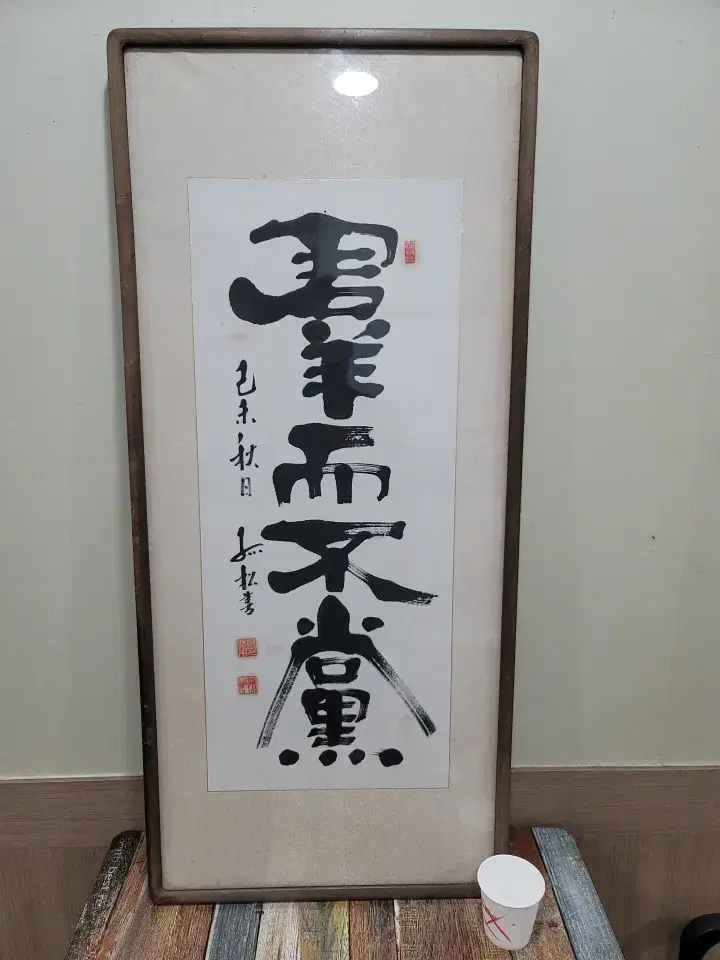 羣而不黨
己未秋日
松書